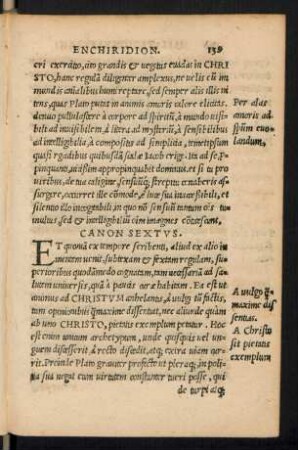 ENCHIRIDION. 139
cri excreato, ceu grandis & vegetus euadas in CHRI
STO, hanc regulā diligenter amplexus, ne velis cū im
mundis aīalibus humi reptare, sed semper alis illis ni
tens, quas Plato putat in animis amoris calore elicitas
denuo pullulascere à corpore ad spiritū, à mundo visi
bili ad inuisibilem, à litera ad mysteriū, à sensibilibus
ad intelligibilia, à compositis ad simplicia, temetipsum
quasi gradibus quibusdā scalæ Iacob erige. Ita ad se ꝓ-
pinquantem appropinquabit dominus, et si tu pro
viribus, de tua caligine, sensuūq; strepitu conaberis as-
surgere, occurret ille cōmode, è luce sua inaccessibili, et
silentio incogitabili in quo nō sensuū tantum oīs tu-
multus, sed & intelligibiliū oīm imagines cōticescunt.
CANON SEXTVS.
ET quoniā ex tempore scribenti, aliud ex alio in
mentem venit, subtexam & sextam regulam,
superioribus quodāmodo cognatam, tam necessariā ad sa-
lutem uniuersis, quā à paucis curæ habitam. Ea est ut
animus ad CHRISTVM anhelantis, à vulgi tū factis,
tum opinionibus quàm maxime dissentiat, nec aliunde quàm
ab uno CHRISTO, pietatis exemplum petatur. Hoc
est enim unicum archetypum, unde quisquis vel un-
guem discesserit, à recto discedit, atq; extra viam cur-
rit. Proinde Plato grauiter profecto ut pleraq;, in poli-
tia sua negat eum virtutem constanter tueri posse, qui
de turpi atq;
Per alas
amoris ad
spūm euo-
landum.
A vulgo quàm
maxime dis
sentias.
A Christo
sit pietatis
exemplum